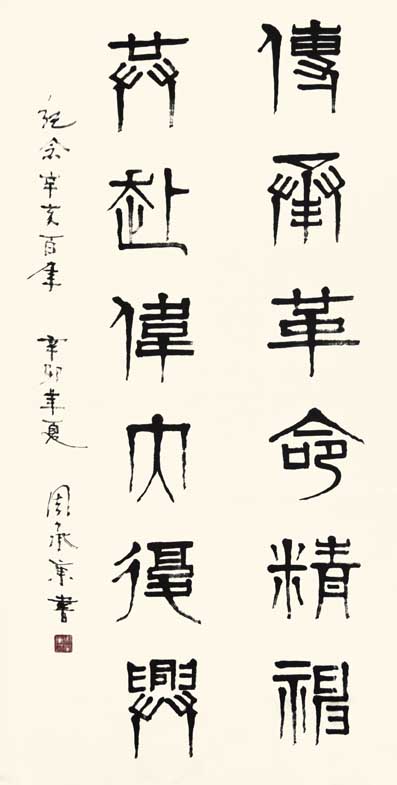 傳承革命精神
共赴偉大復興
紀念辛亥百年 辛卯年夏 周承書